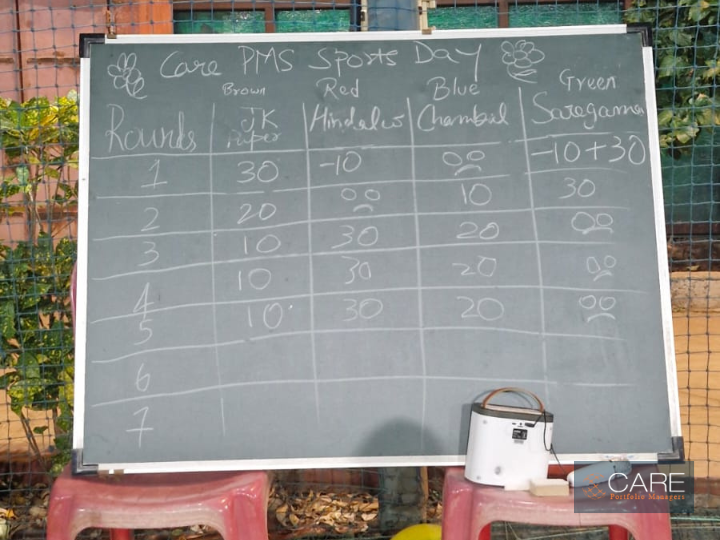 Care PMS Sports Day
Brown Red Blue Green
Rounds JK Paper Hindalco Chambal Saregama
1 30 -10 00 -10+30
2 20 00 10 30
3 10 30 20 00
4 10 30 20 00
5 10 30 20 00
6
7
CARE
Portfolio Managers